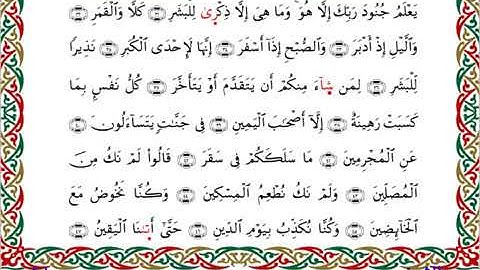 يَعْلَمُ جُنُودَ رَبِّكَ إِلَّا هُوَ ۚ وَمَا هِىَ إِلَّا ذِكْرَىٰ لِلْبَشَرِ ﴿٣١﴾ كَلَّا وَٱلْقَمَرِ ﴿٣٢﴾
وَٱلَّيْلِ إِذْ أَدْبَرَ ﴿٣٣﴾ وَٱلصُّبْحِ إِذَآ أَسْفَرَ ﴿٣٤﴾ إِنَّهَا لَإِحْدَى ٱلْكُبَرِ ﴿٣٥﴾ نَذِيرًا
لِّلْبَشَرِ ﴿٣٦﴾ لِمَن شَآءَ مِنكُمْ أَن يَتَقَدَّمَ أَوْ يَتَأَخَّرَ ﴿٣٧﴾ كُلُّ نَفْسٍۭ بِمَا
كَسَبَتْ رَهِينَةٌ ﴿٣٨﴾ إِلَّآ أَصْحَٰبَ ٱلْيَمِينِ ﴿٣٩﴾ فِى جَنَّٰتٍ يَتَسَآءَلُونَ ﴿٤٠﴾
عَنِ ٱلْمُجْرِمِينَ ﴿٤١﴾ مَا سَلَكَكُمْ فِى سَقَرَ ﴿٤٢﴾ قَالُوا۟ لَمْ نَكُ مِنَ
ٱلْمُصَلِّينَ ﴿٤٣﴾ وَلَمْ نَكُ نُطْعِمُ ٱلْمِسْكِينَ ﴿٤٤﴾ وَكُنَّا نَخُوضُ مَعَ
ٱلْخَآئِضِينَ ﴿٤٥﴾ وَكُنَّا نُكَذِّبُ بِيَوْمِ ٱلدِّينِ ﴿٤٦﴾ حَتَّىٰٓ أَتَىٰنَا ٱلْيَقِينُ ﴿٤٧﴾